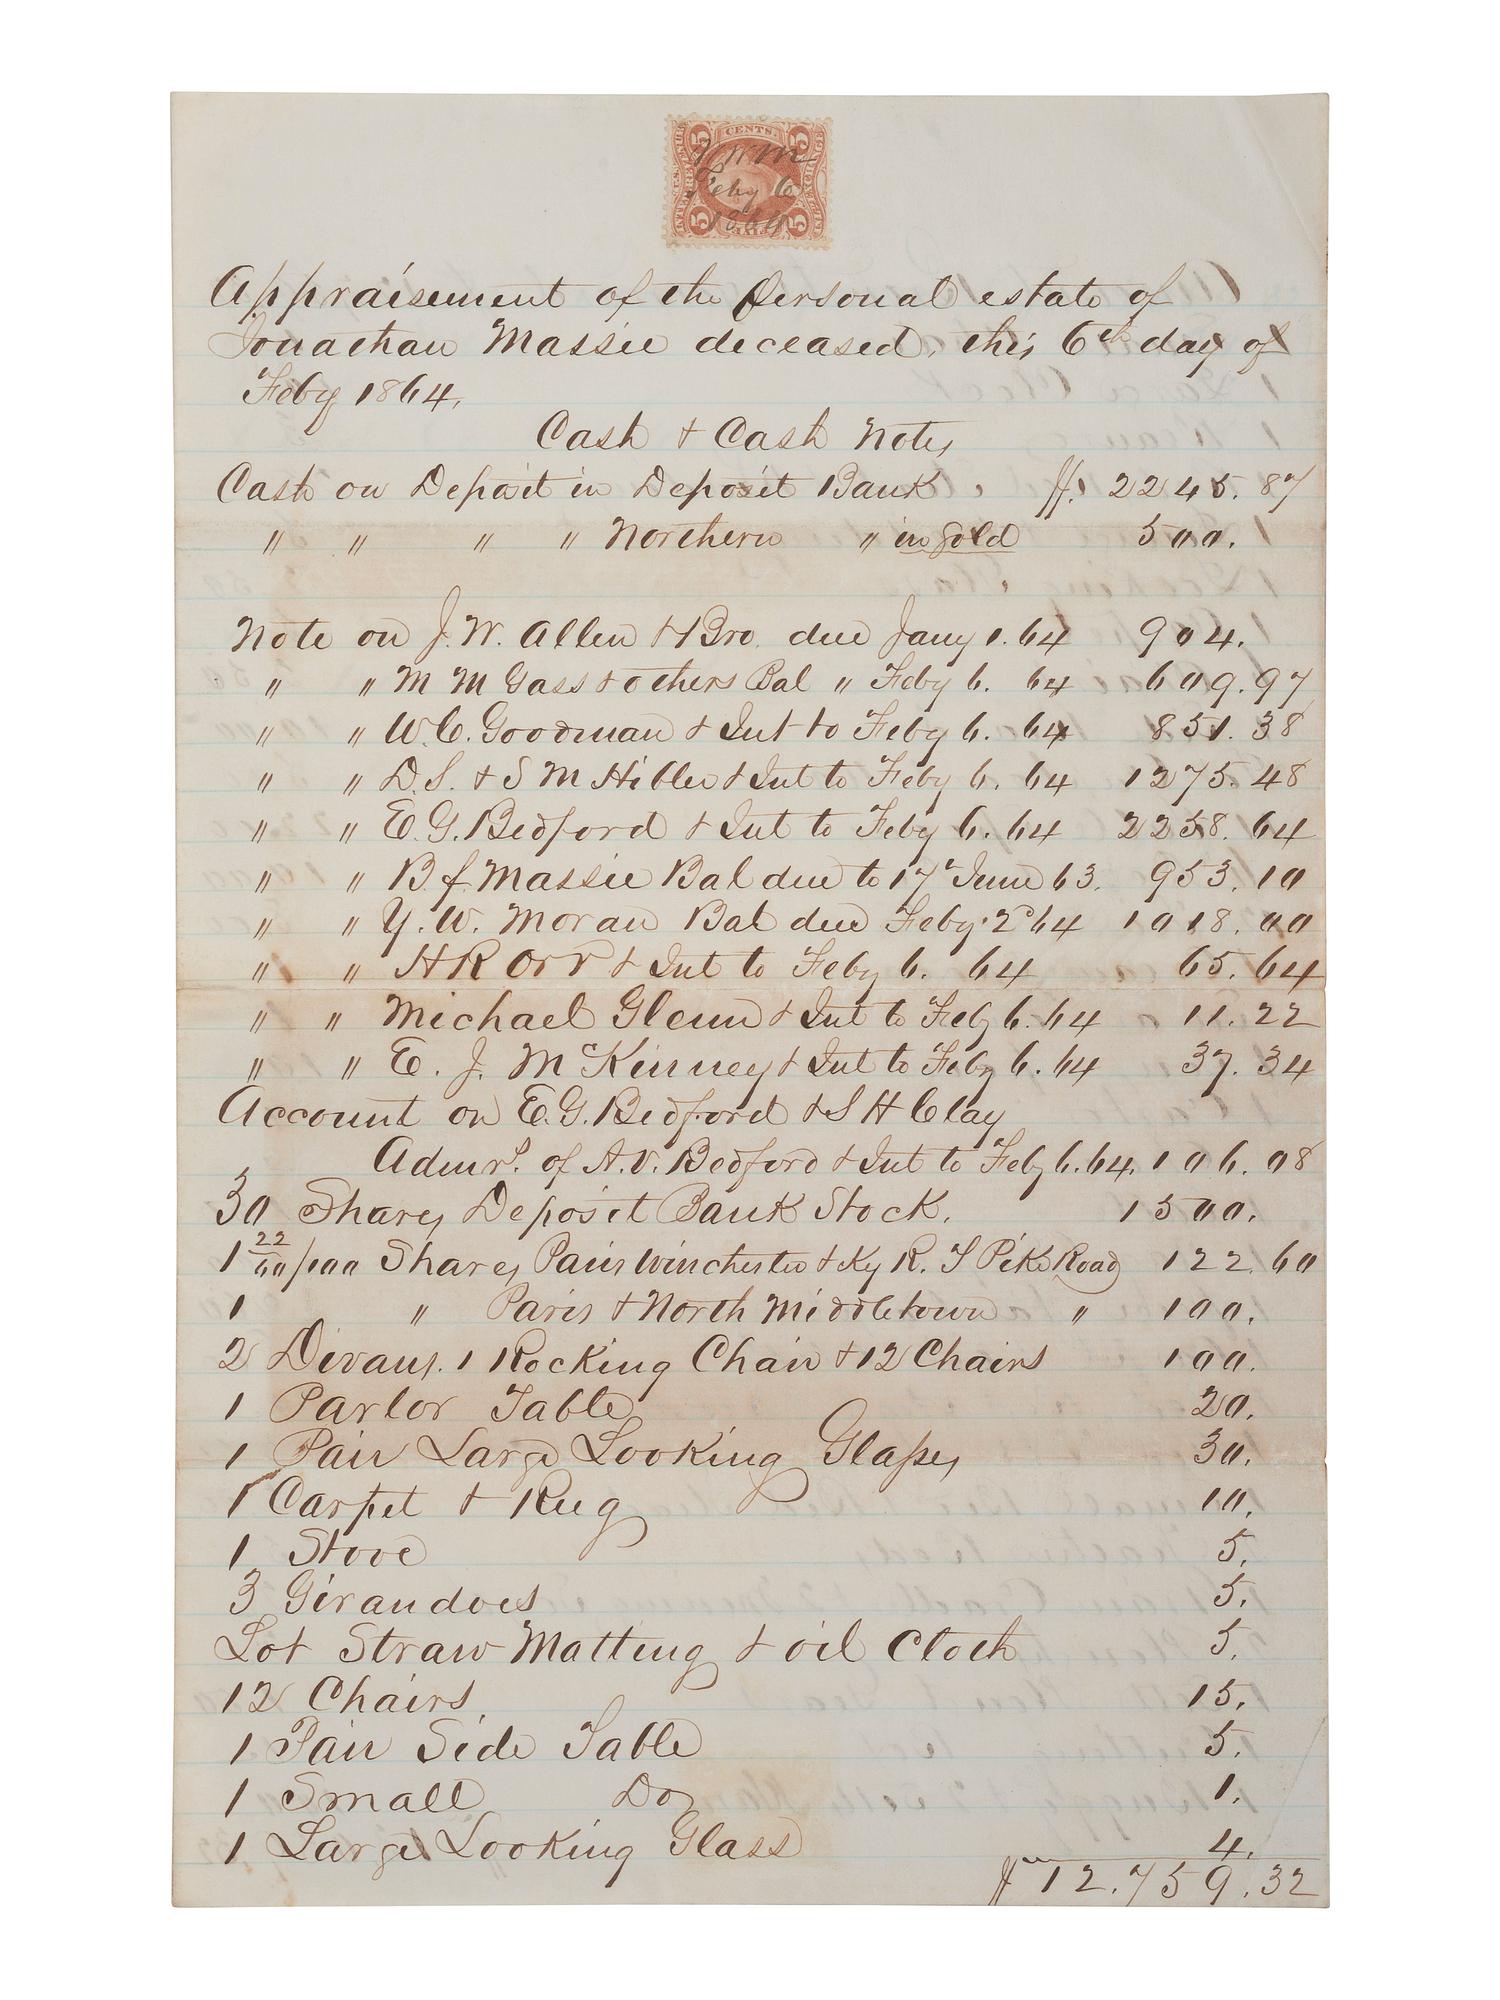 U.S. INTER. REVENUE
5 CENTS. 5
EXCHANGE
5 FIVE 5
Feby 6
1864
Appraisement of the Personal estate of
Jonathan Massie deceased, this 6th day of
Feby 1864.
Cash & Cash Notes
Cash on Deposit in Deposit Bank $. 2245. 87
" " " " Northern " in gold 500.
Note on J. W. Allen & Bro. due Jany 1. 64 904.
" " M M Gass & others Bal " Feby 6. 64 609. 97
" " W. C. Goodman & Int to Feby 6. 64 851. 38
" " D. S. & S M Hibler & Int to Feby 6. 64 1275. 48
" " E. G. Bedford & Int to Feby 6. 64 2258. 64
" " B. f. Massie Bal due to 17th June 63. 953. 10
" " Y. W. Moran Bal due Feby 2d 64 1018. 00
" " H R Orr & Int to Feby 6. 64 65. 64
" " Michael Glenn & Int to Feby 6. 64 11. 22
" " E. J. McKinney & Int to Feby 6. 64 37. 34
Account on E. G. Bedford & S H Clay
Admrs. of A. V. Bedford & Int to Feby 6. 64. 106. 08
30 Shares Deposit Bank Stock. 1500.
1 22 60/100 Shares Paris Winchester & Ky R. T Pike Road 122. 60
1 " Paris & North Middletown " 100.
2 Divans. 1 Rocking Chair & 12 Chairs 100.
1 Parlor Table 20.
1 Pair Large Looking Glasses 30.
1 Carpet & Rug 10.
1 Stove 5.
3 Girandoes 5.
Lot Straw Matting & oil Cloth 5.
12 Chairs. 15.
1 Pair Side Table 5.
1 Small Do 1.
1 Large Looking Glass 4.
$ 12.759.32